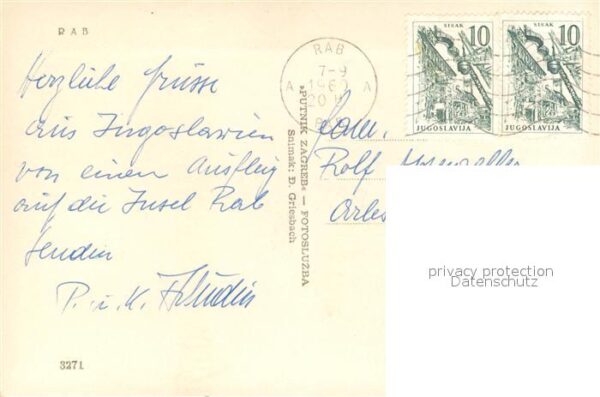 RAB
Herzliche Grüsse
aus Jugoslawien
von einen Ausflug
auf die Insel Rab
senden
P. u. K.
3271
»PUTNIK ZAGREB« — FOTOSLUŽBA
Snimak: D. Griesbach
RAB
7-9
1960
20
A A
SISAK
10
JUGOSLAVIJA
SISAK
10
JUGOSLAVIJA
Fam.
Rolf
privacy protection
Datenschutz